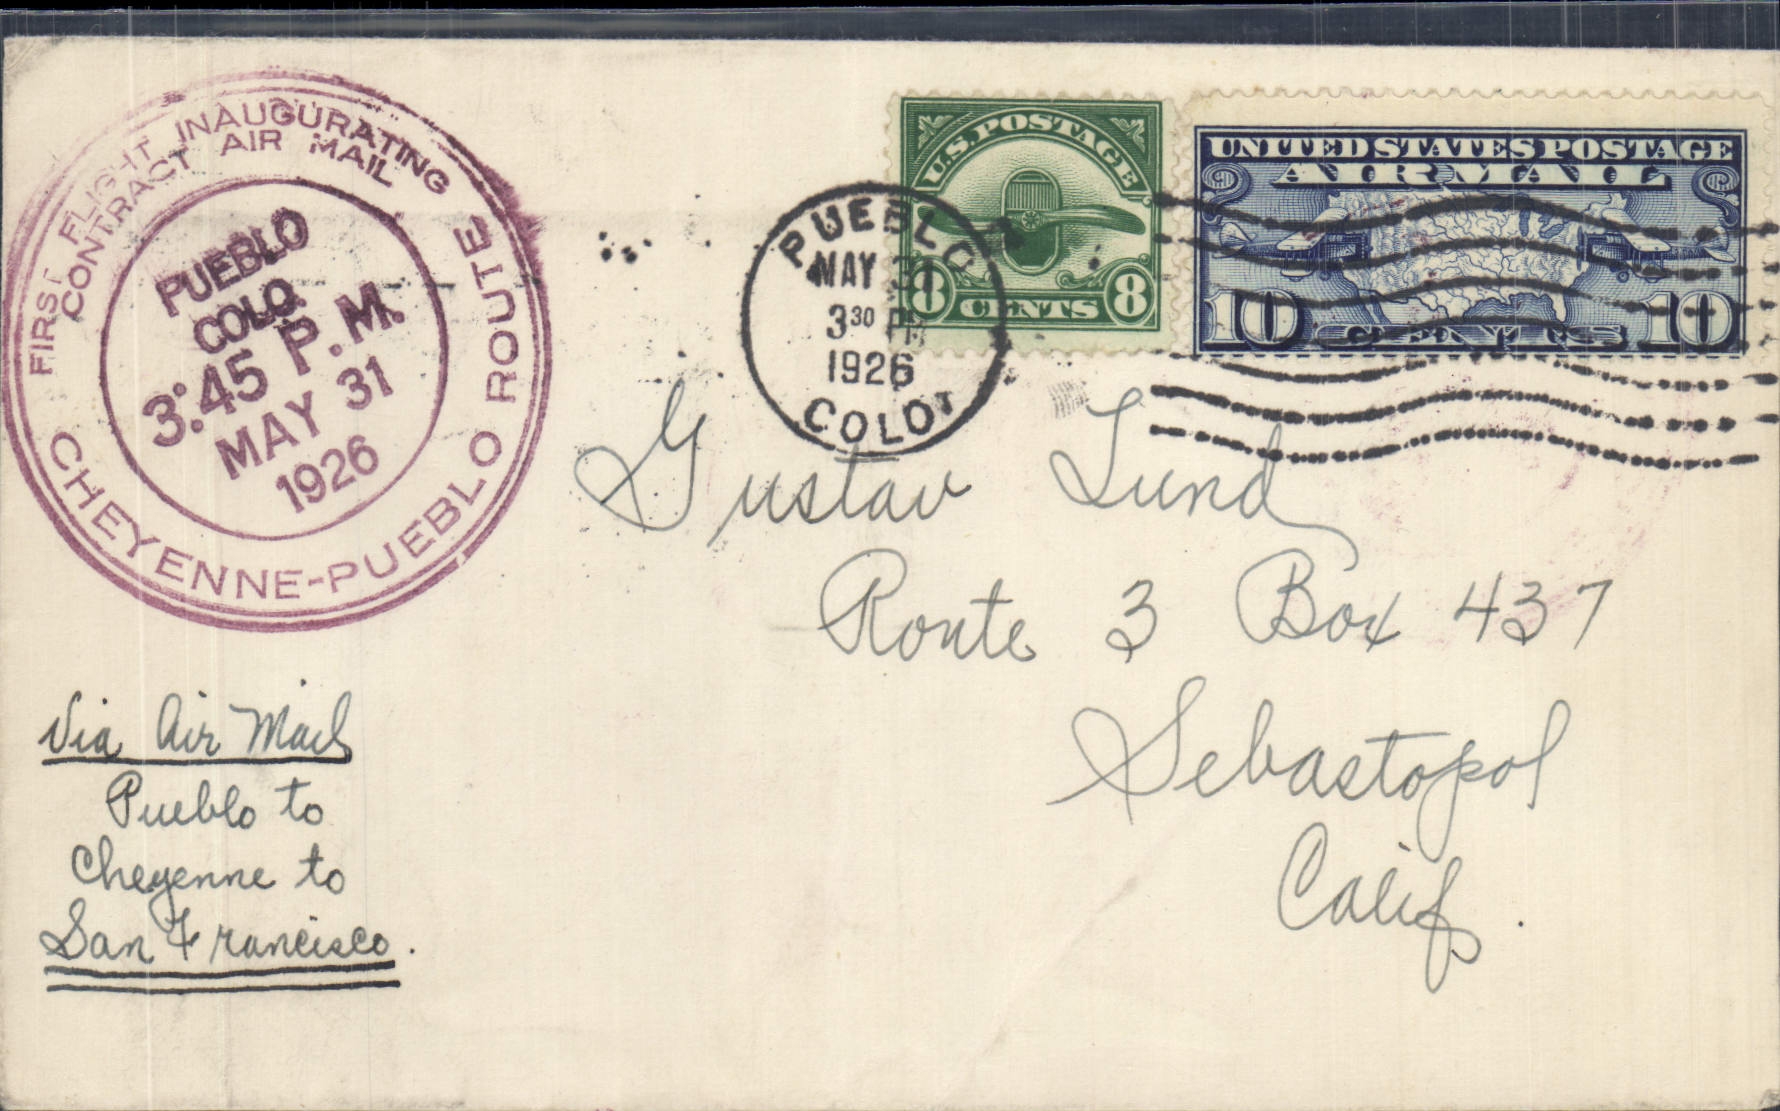 FIRST FLIGHT INAUGURATING
CONTRACT AIR MAIL
ROUTE
CHEYENNE-PUEBLO
PUEBLO
COLO.
3:45 P.M.
MAY 31
1926
PUEBLO
MAY 31
3 30 PM
1926
COLO.
U.S. POSTAGE
8 CENTS 8
UNITED STATES POSTAGE
AIR MAIL
10 CENTS 10
Gustav Lund
Route 3 Box 437
Sebastopol
Calif.
Via Air Mail
Pueblo to
Cheyenne to
San Francisco.